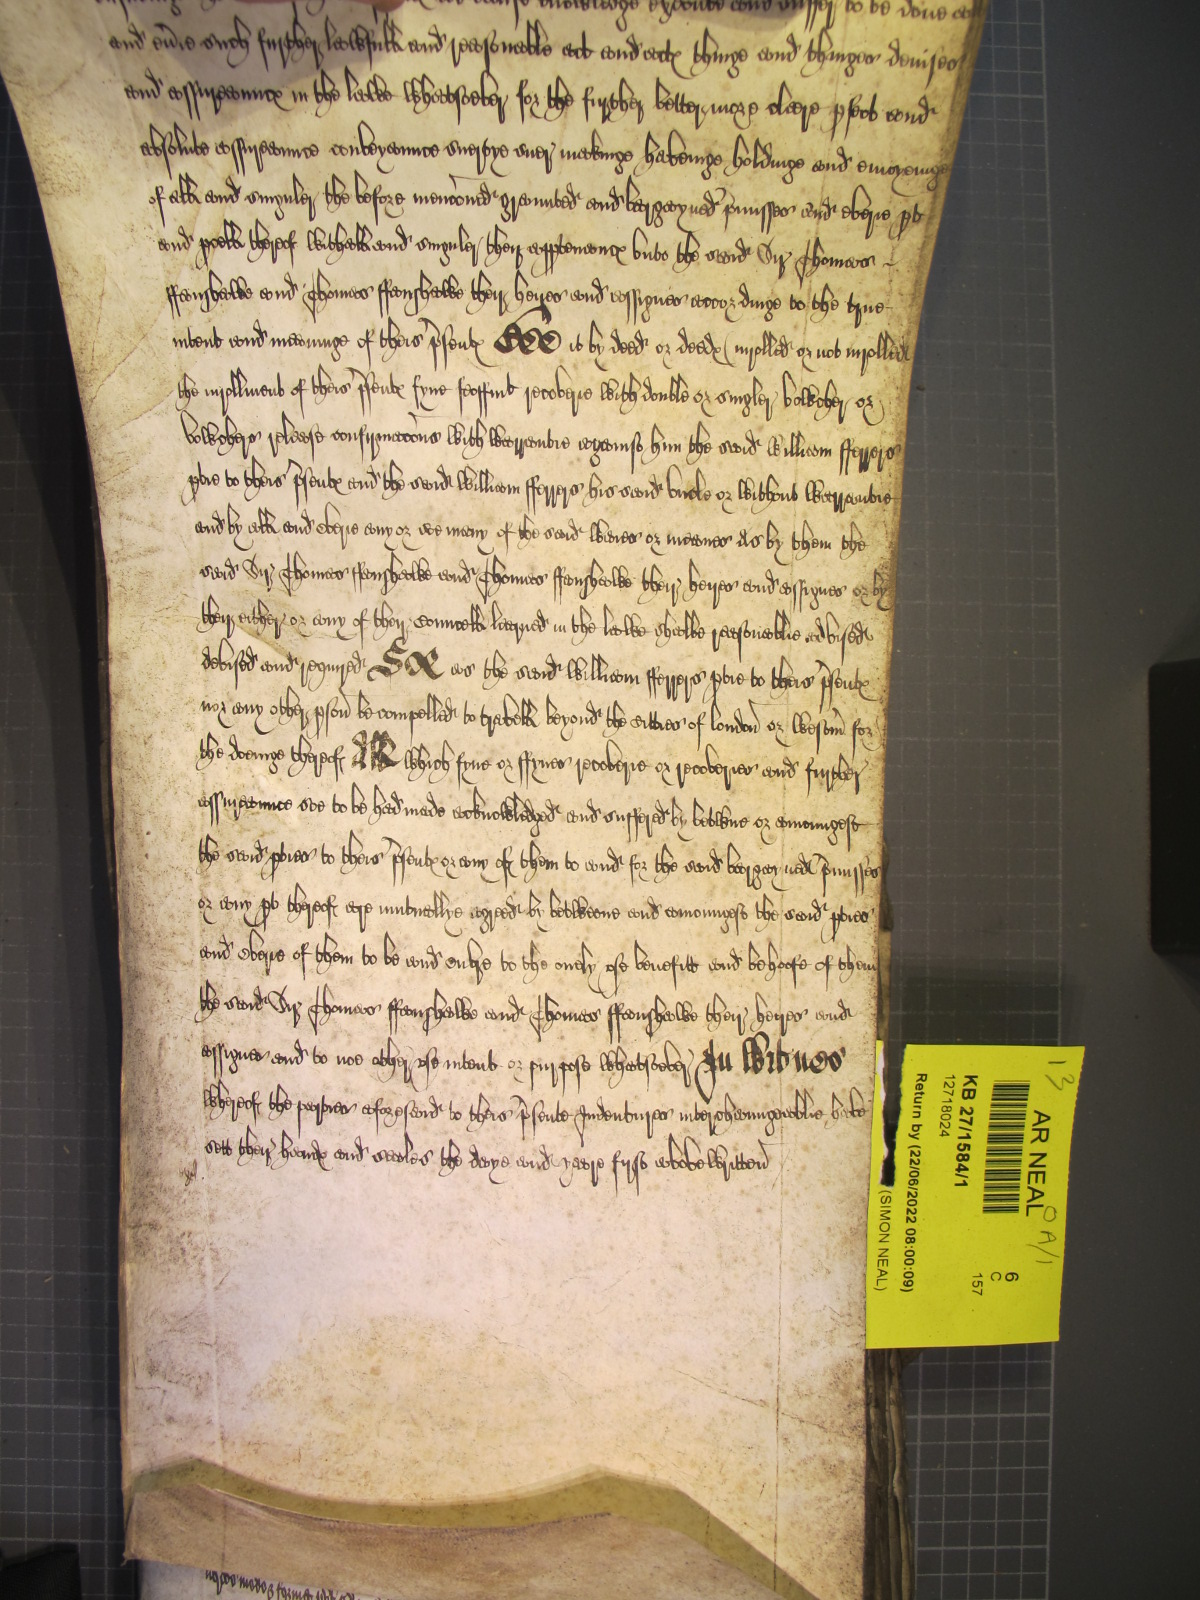 knowledge execute and suffer to be done and
and ev'ie such further lawfull and reasonable act and actx thinge and thinges devises
and assurauncx in the lawe whatsoever for the further better more cleere p'fect and
absolute assuraunce conveyaunce suertye suer makinge havinge holdinge and enioyenge
of all and singuler the before menc'oned graunted and bargayned p'misses and everie p't
and p'cell thereof withall and singuler their apptenancx unto the said Sir Thomas
ffanshawe and Thomas ffanshawe their heyres and assignes accordinge to the true
intent and meaninge of theis p'sentx Bee it by deed or deedx inrolled or not inrolled
the inrollment of theis p'sentx fyne feoffmt recoverie with double or singler vowcher or
vowchers release confirmac'ons with warrantie against him the said william fferrers
p'tie to theis p'sentx and the said william fferrers his said uncle or without warrantie
and by all and everie any or soe many of the said waies or meanes As by them the
said Sir Thomas ffanshawe and Thomas ffanshawe their heyres and assignes or by
their either or any of their councell learned in the lawe shalbe reasonablie advised
devised and required Soe as the said william fferrers p'tie to theis p'sentx
nor any other p'son be compelled to travell beyond the citties of london or westm' for
the doeinge thereof All which fyne or ffynes recoverie or recoveries and further
assuraunce soe to be had made acknowledged and suffered by betwene or amoungest
the said p'ties to theis p'sentx or any of them to and for the said bargayned p'misses
or any p't thereof are mutuallye agreed by betweene and amoungest the said p'ties
and everie of them to be and enure to the onely use benefitt and behoofe of them
the said Sir Thomas ffanshawe and Thomas ffanshawe their heyres and
assignes and to noe other use intent or purpose whatsoever In witnes
whereof the parties aforesaid to theis p'sente Indentures interchaungeablie have
sett their handx and seales the daye and yeere first above written
13
AR NEAL
O A/1
KB 27/1584/1
12718024
Return by (22/06/2022 08:00:09)
(SIMON NEAL)
6
C
157